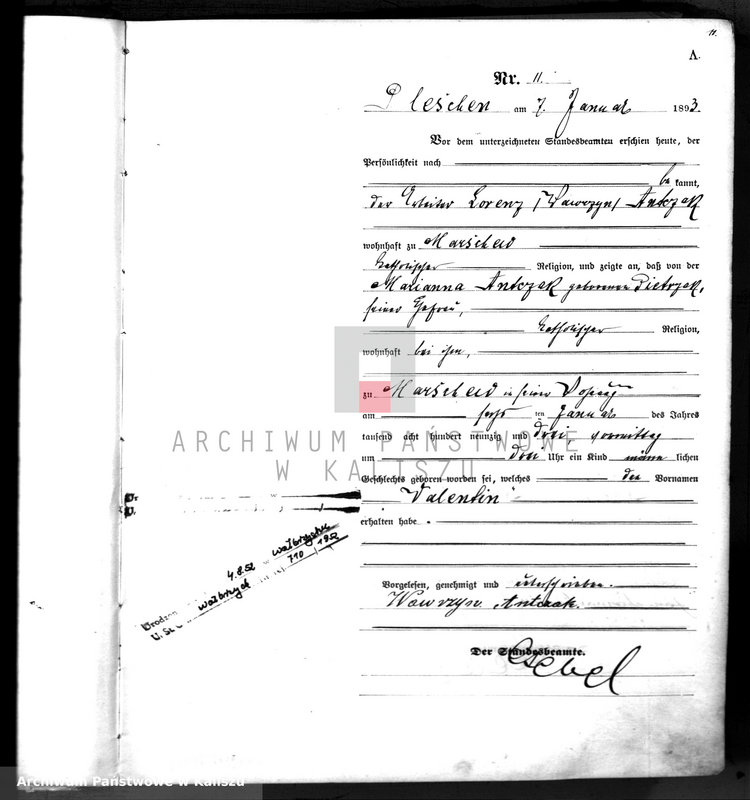 11.
A.
Nr. 11.
Pleschen am 7. Januar 1893.
Vor dem unterzeichneten Standesbeamten erschien heute, der
Persönlichkeit nach
be kannt,
der Arbeiter Lorenz /Wawrzyn/ Antczak
wohnhaft zu Marschew
katholischer Religion, und zeigte an, daß von der
Marianna Antczak geborenen Pietrzak,
seiner Ehefrau,
katholischer Religion,
wohnhaft bei ihm,
zu Marschew in seiner Wohnung
am sechs ten Januar des Jahres
tausend acht hundert neunzig und drei, vormittag
um drei Uhr ein Kind männ lichen
Geschlechts geboren worden sei, welches den Vornamen
"Valentin"
erhalten habe.
Vorgelesen, genehmigt und unterschrieben.
Wawrzyn Antczak.
Der Standesbeamte.
4.8.52 w Wałbrzychu
U.S.C. Wałbrzych 710/1952
ARCHIWUM PAŃSTWOWE
W KALISZU
Archiwum Państwowe w Kaliszu